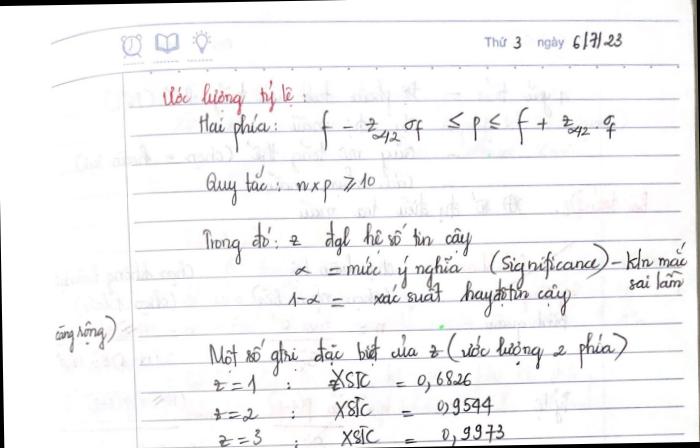 Thứ 3 ngày 6/7/23
Ước lượng tỷ lệ :
Hai phía: f - z_{α/2} σf ≤ p ≤ f + z_{α/2} . σf
Quy tắc: n x p ≥ 10
Trong đó: z đgl hệ số tin cậy
α = mức ý nghĩa (Significance) - kln mắc
sai lầm
1-α = xác suất hay độ tin cậy
càng rộng)
Một số gtri đặc biệt của z (ước lượng 2 phía)
z = 1 : XSTC = 0,6826
z = 2 : XSTC = 0,9544
z = 3 : XSTC = 0,9973